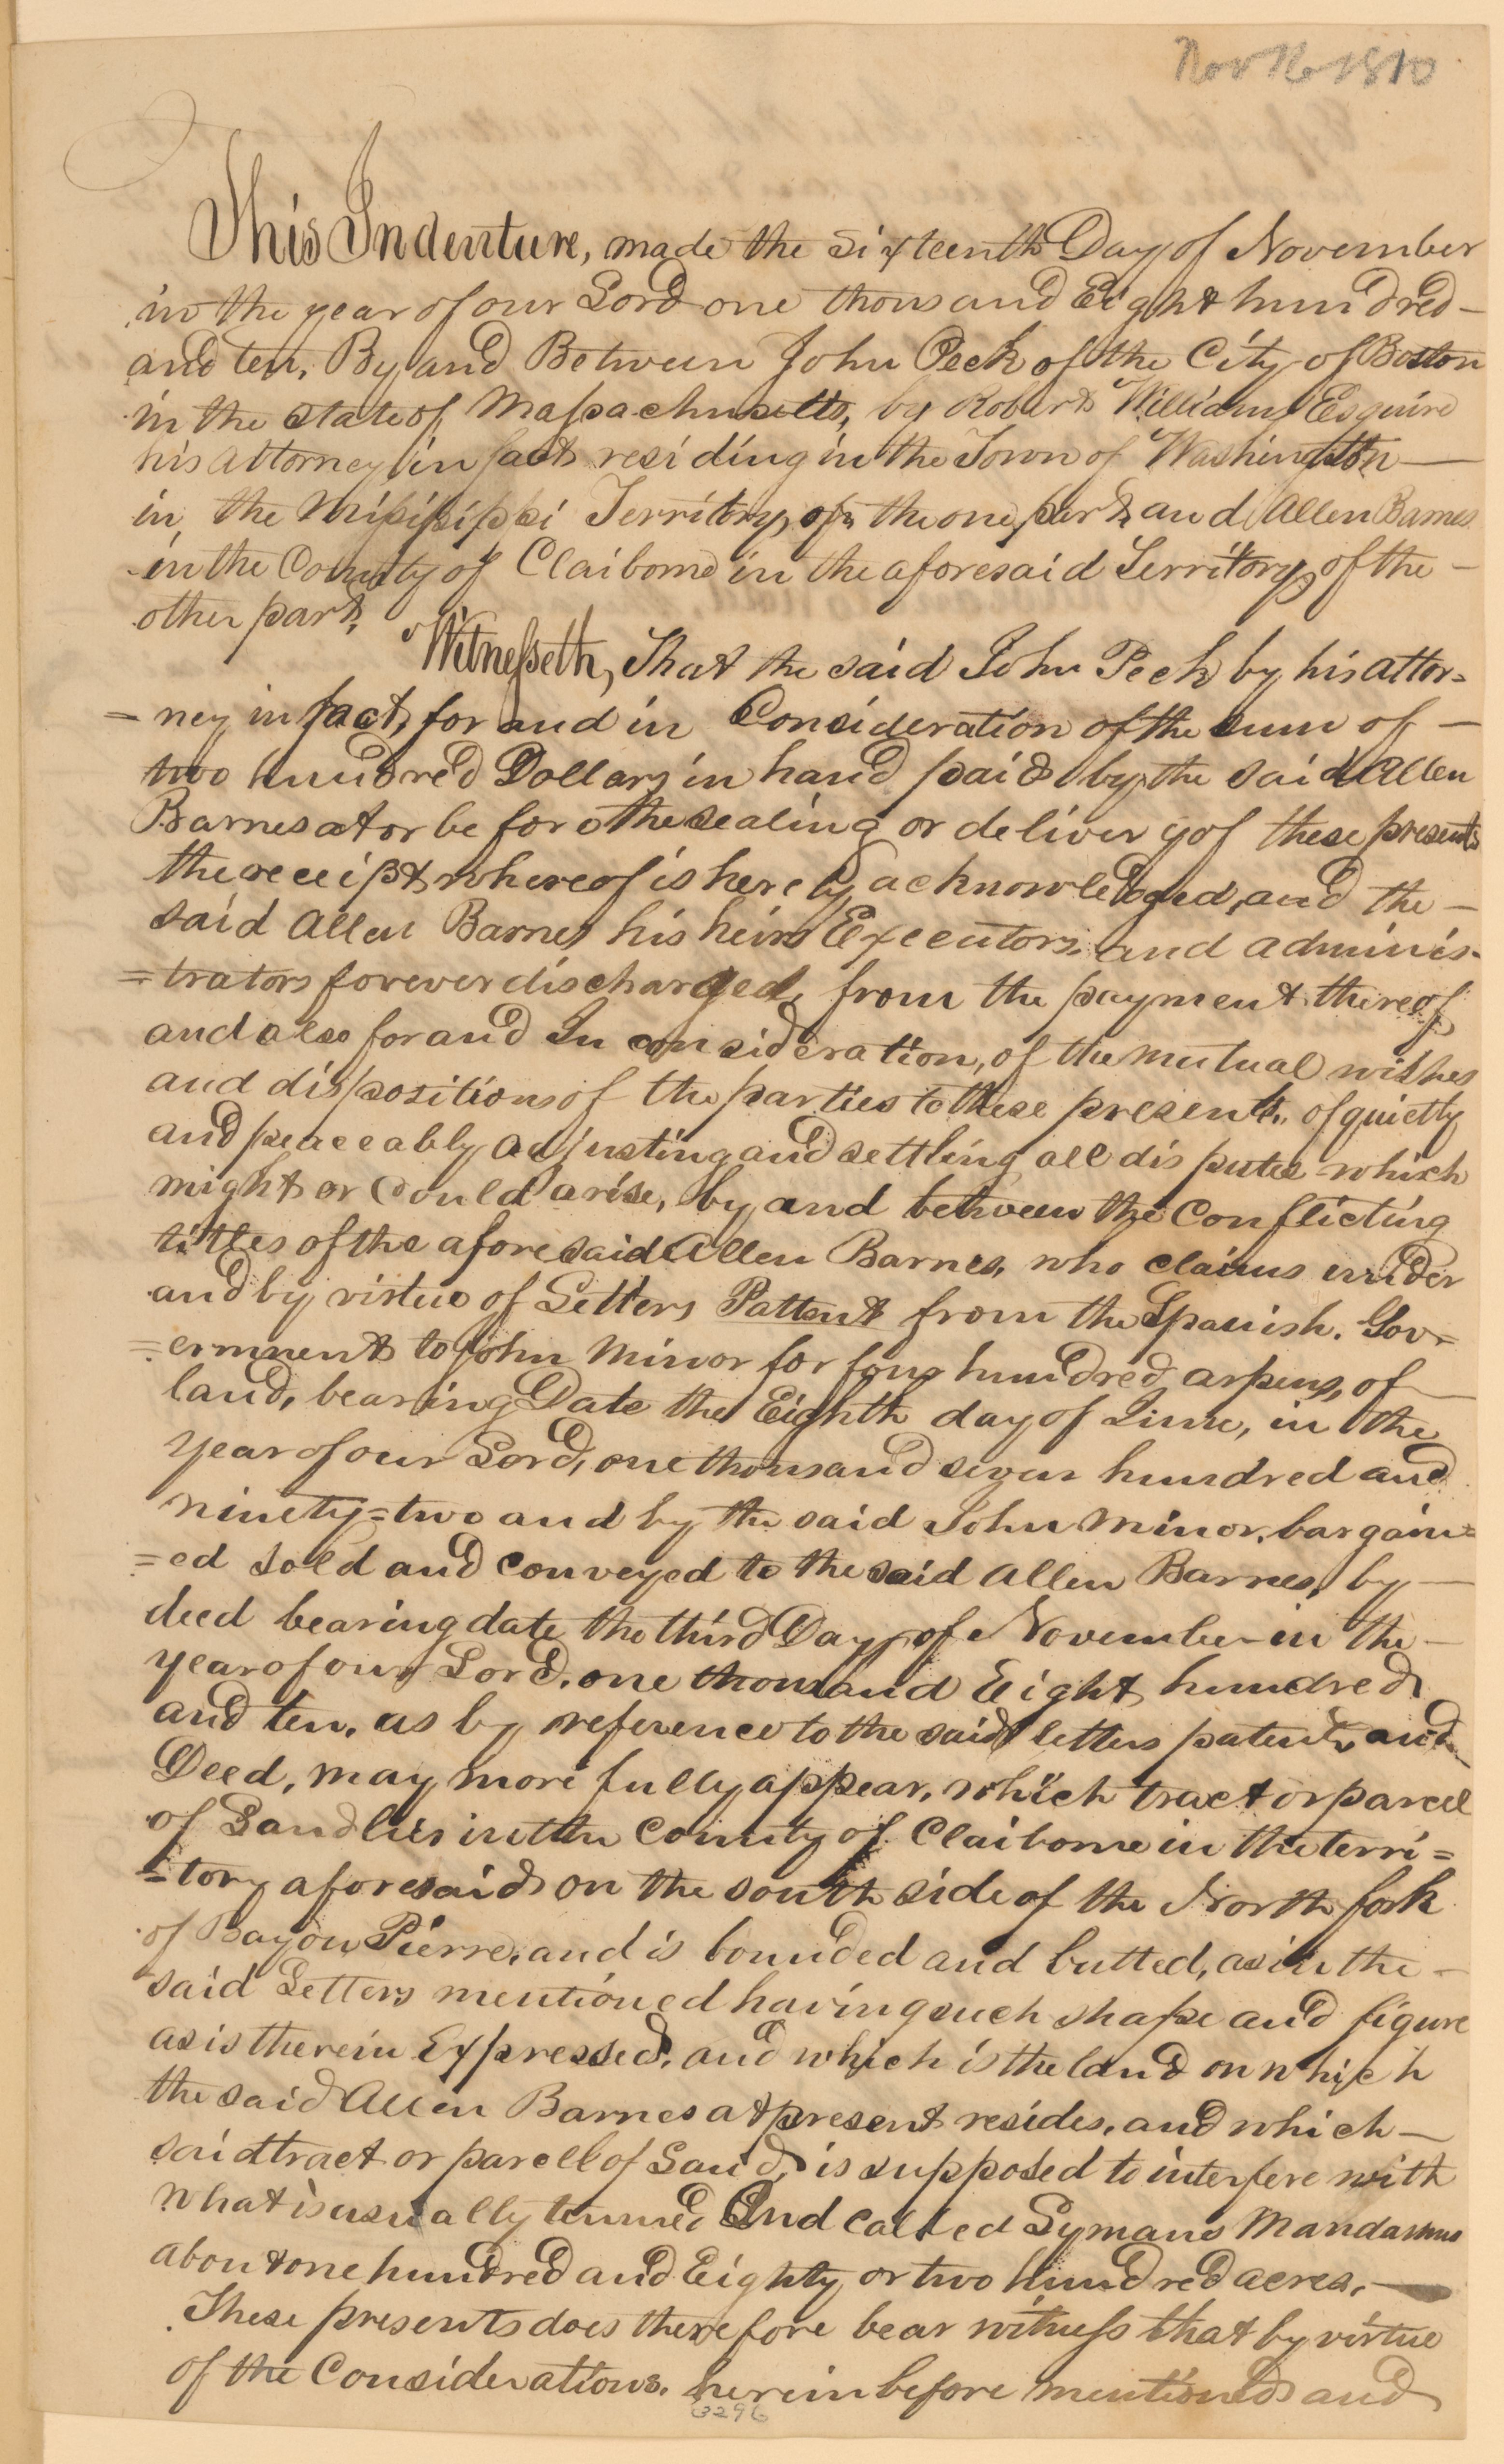 Nov 16 1810
This Indenture, made the sixteenth Day of November
in the year of our Lord one thousand Eight hundred –
and ten, By and Between John Peck of the City of Boston
in the state of Massachusetts, by Robert Williams Esquire
his attorney in fact residing in the Town of Washington –
in the Missisippi Territory, of the one part, and Allen Barnes
in the County of Claiborne in the aforesaid Territory, of the –
other part,
Witnesseth, That the said John Peck by his attor=
=ney in fact, for and in Consideration of the sum of –
two hundred Dollars in hand paid by the said Allen
Barnes at or before the sealing or delivery of these presents
the receipt whereof is hereby acknowledged, and the –
said Allen Barnes his heirs Executors, and adminis-
=trators forever discharged, from the payment thereof
and also for and In consideration, of the mutual wishes
and dispositions of the parties to these presents, of quietly
and peaceably adjusting and settling all disputes which
might or Could arise, by and between the Conflicting
tittles of the aforesaid Allen Barnes, who claims under
and by virtue of Letters Pattent from the Spanish. Gov=
=ernment to John Minor for four hundred arpens, of –
land, bearing Date the Eighth day of June, in the
year of our Lord, one thousand seven hundred and
ninety=two and by the said John Minor, bargain=
=ed sold and conveyed to the said Allen Barnes, by –
deed bearing date the third Day of November in the –
year of our Lord, one thousand Eight hundred
and ten, as by reference to the said letters patent, and
Deed, may more fully appear, which tract or parcel
of Land lies in the County of Claiborne in the terri=
=tory aforesaid on the south side of the North fork
of Bayou Pierre, and is bounded and butted, as in the –
said Letters mentioned having such shape and figure
as is therein Expressed, and which is the land on which
the said Allen Barnes at present resides, and which –
said tract or parcell of Land, is supposed to interfere with
what is usually termed And called Symans Mandamus
about one hundred and Eighty or two hundred acres. –
These presents does therefore bear witness that by virtue
of the Considerations, herein before mentioned and
3296